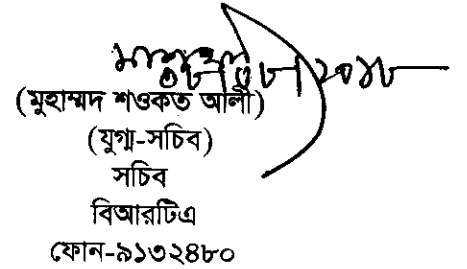 (মুহাম্মদ শওকত আলী)
(যুগ্ম-সচিব)
সচিব
বিআরটিএ
ফোন-৯১৩২৪৮০